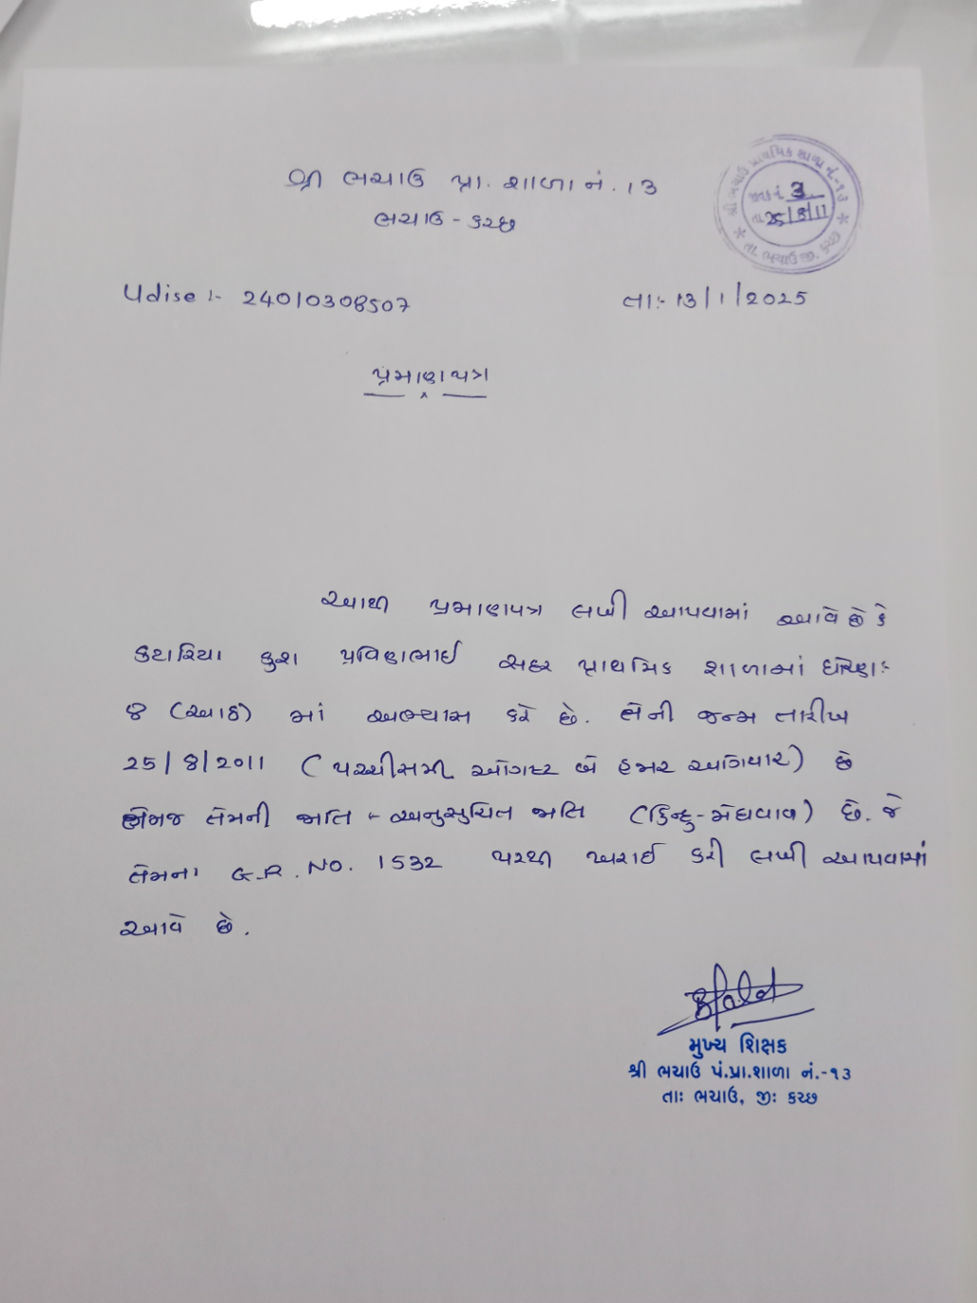 શ્રી ભચાઉ પ્રા. શાળા નં. ૧૩
ભચાઉ - કચ્છ
શ્રી ભચાઉ પ્રાથમિક શાળા નં.-૧૩
3
તા. ભચાઉ જી. કચ્છ
Udise :- 24010308507
તા:- 13/1/2025
પ્રમાણપત્ર
આથી પ્રમાણપત્ર લખી આપવામાં આવે છે કે
કટારિયા કુશ પ્રવિણભાઈ સદર પ્રાથમિક શાળામાં ધોરણ:
8 (આઠ) માં અભ્યાસ કરે છે. તેની જન્મ તારીખ
25/8/2011 (પચ્ચીસમી ઓગષ્ટ બે હજાર અગિયાર) છે
તેમજ તેમની જાતિ - અનુસુચિત જાતિ (હિન્દુ-મેઘવાળ) છે. જે
તેમના G.R. NO. 1532 પરથી ખરાઈ કરી લખી આપવામાં
આવે છે.
મુખ્ય શિક્ષક
શ્રી ભચાઉ પં.પ્રા.શાળા નં.-૧૩
તાઃ ભચાઉ, જીઃ કચ્છ